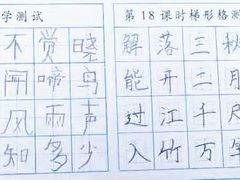 学测试
不觉晓
闻啼鸟
风雨声
知多少
第18课时梯形格测
解落三秋
能开二月
过江千尺
入竹万竿